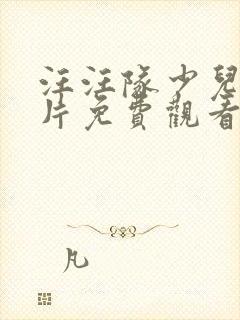 汪汪隊少兒
片免費觀看
凡